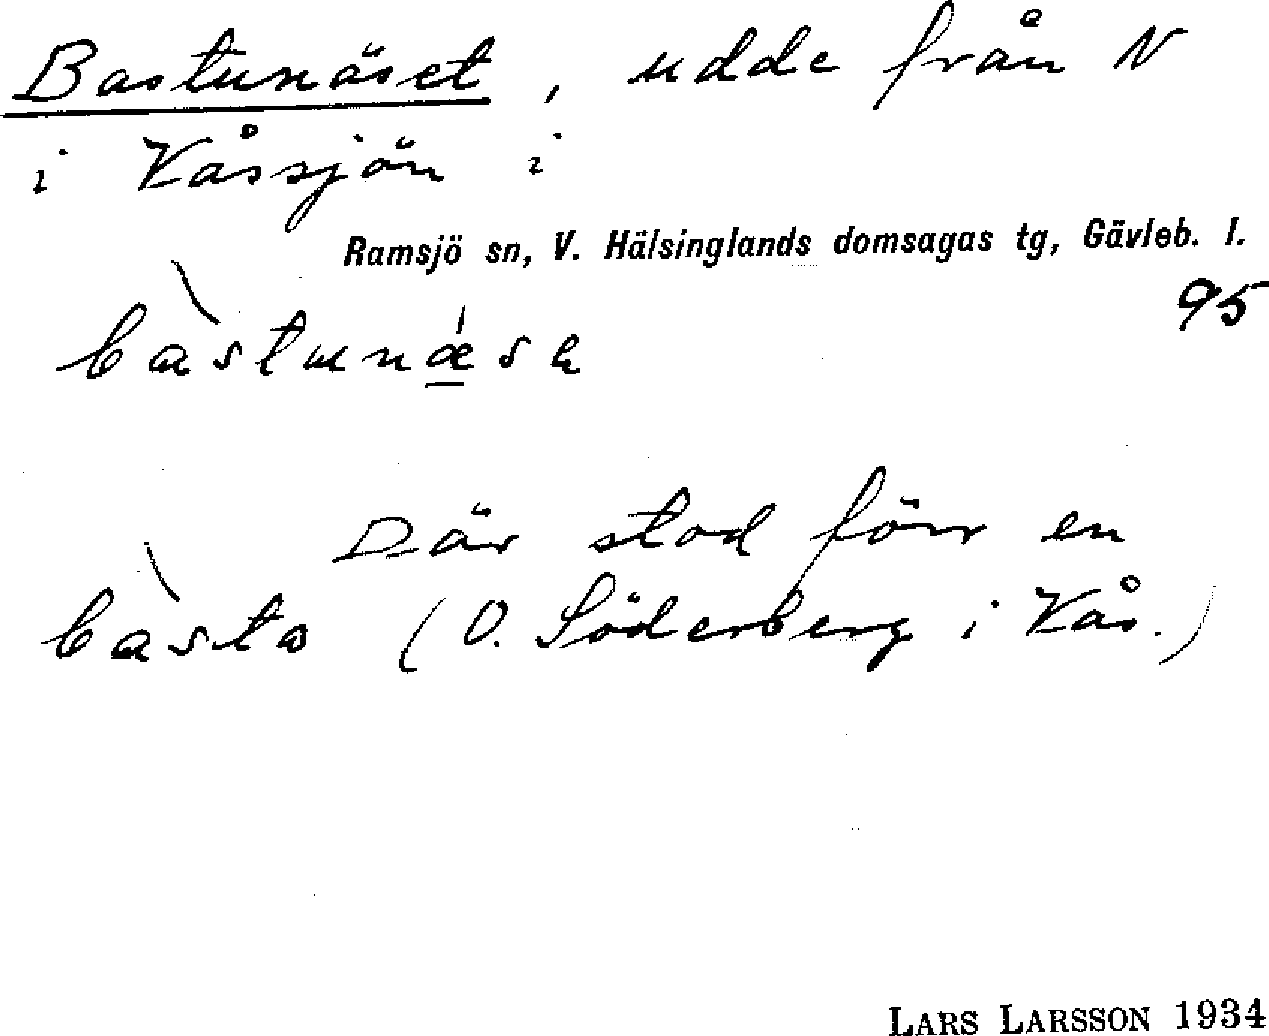 Bastunäset, udde från N
i Kåssjön i
Ramsjö sn, V. Hälsinglands domsagas tg, Gävleb. l.
95
bàstunæ̀sa
Där stod förr en
bàsto (O. Söderberg i Kås.)
LARS LARSSON 1934